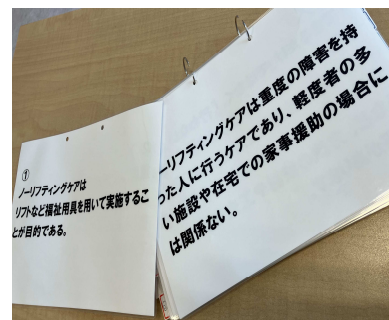 ①
ノーリフティングケアは
リフトなど福祉用具を用いて実施するこ
とが目的である。
ーリフティングケアは重度の障害を持
った人に行うケアであり、軽度者の多
い施設や在宅での家事援助の場合に
は関係ない。